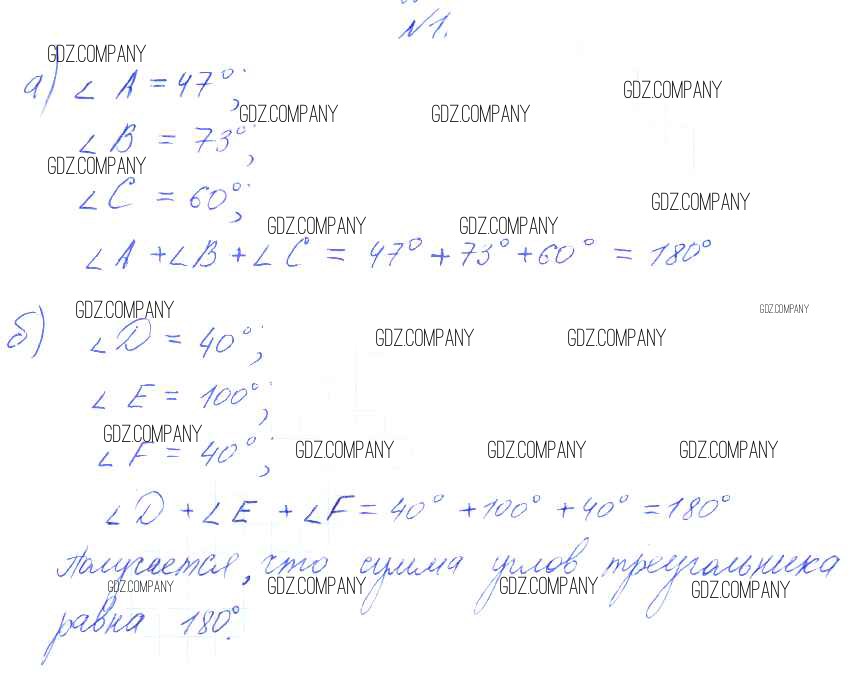 №1.
GDZ.COMPANY
а) ∠A = 47°;
GDZ.COMPANY
GDZ.COMPANY GDZ.COMPANY
∠B = 73°;
GDZ.COMPANY
∠C = 60°;
GDZ.COMPANY
GDZ.COMPANY GDZ.COMPANY
∠A + ∠B + ∠C = 47° + 73° + 60° = 180°
GDZ.COMPANY GDZ.COMPANY
б) ∠D = 40°;
GDZ.COMPANY GDZ.COMPANY
∠E = 100°;
GDZ.COMPANY
∠F = 40°;
GDZ.COMPANY GDZ.COMPANY GDZ.COMPANY
∠D + ∠E + ∠F = 40° + 100° + 40° = 180°
Получается, что сумма углов треугольника
GDZ.COMPANY GDZ.COMPANY GDZ.COMPANY GDZ.COMPANY
равна 180°.